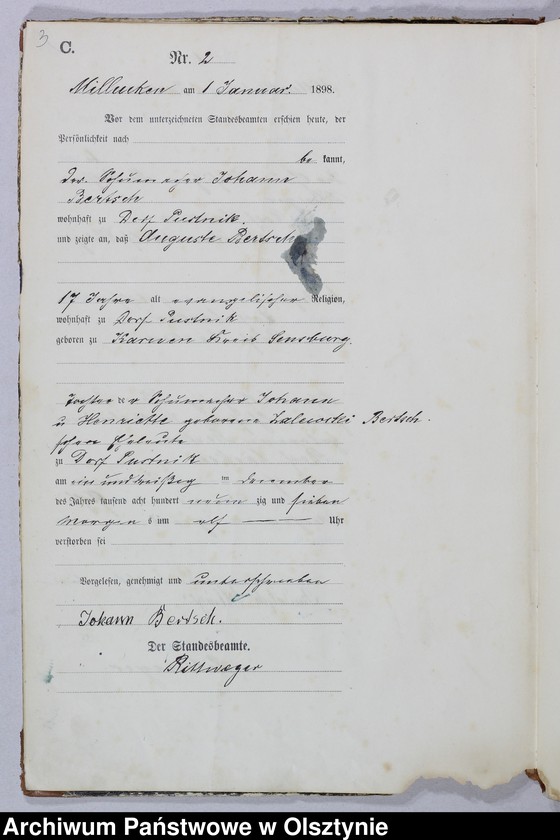 3
C.
Nr. 2
Millucken am 1 Januar. 1898.
Vor dem unterzeichneten Standesbeamten erschien heute, der
Persönlichkeit nach
be kannt,
Der Schumacher Johann
Bertsch
wohnhaft zu Dorf Pustnik.
und zeigte an, daß Auguste Bertsch
17 Jahre alt evangelischer Religion,
wohnhaft zu Dorf Pustnik
geboren zu Karwen Kreis Sensburg.
Tochter der Schumacher Johann
u Henriette geborene Zalewski Bertsch
schen Eheleute
zu Dorf Pustnik
am ein und dreißig im December
des Jahres tausend acht hundert neun zig und sieben
Morgen s um elf Uhr
verstorben sei
Vorgelesen, genehmigt und unterschrieben
Johann Bertsch.
Der Standesbeamte.
Rittweger
Archiwum Państwowe w Olsztynie